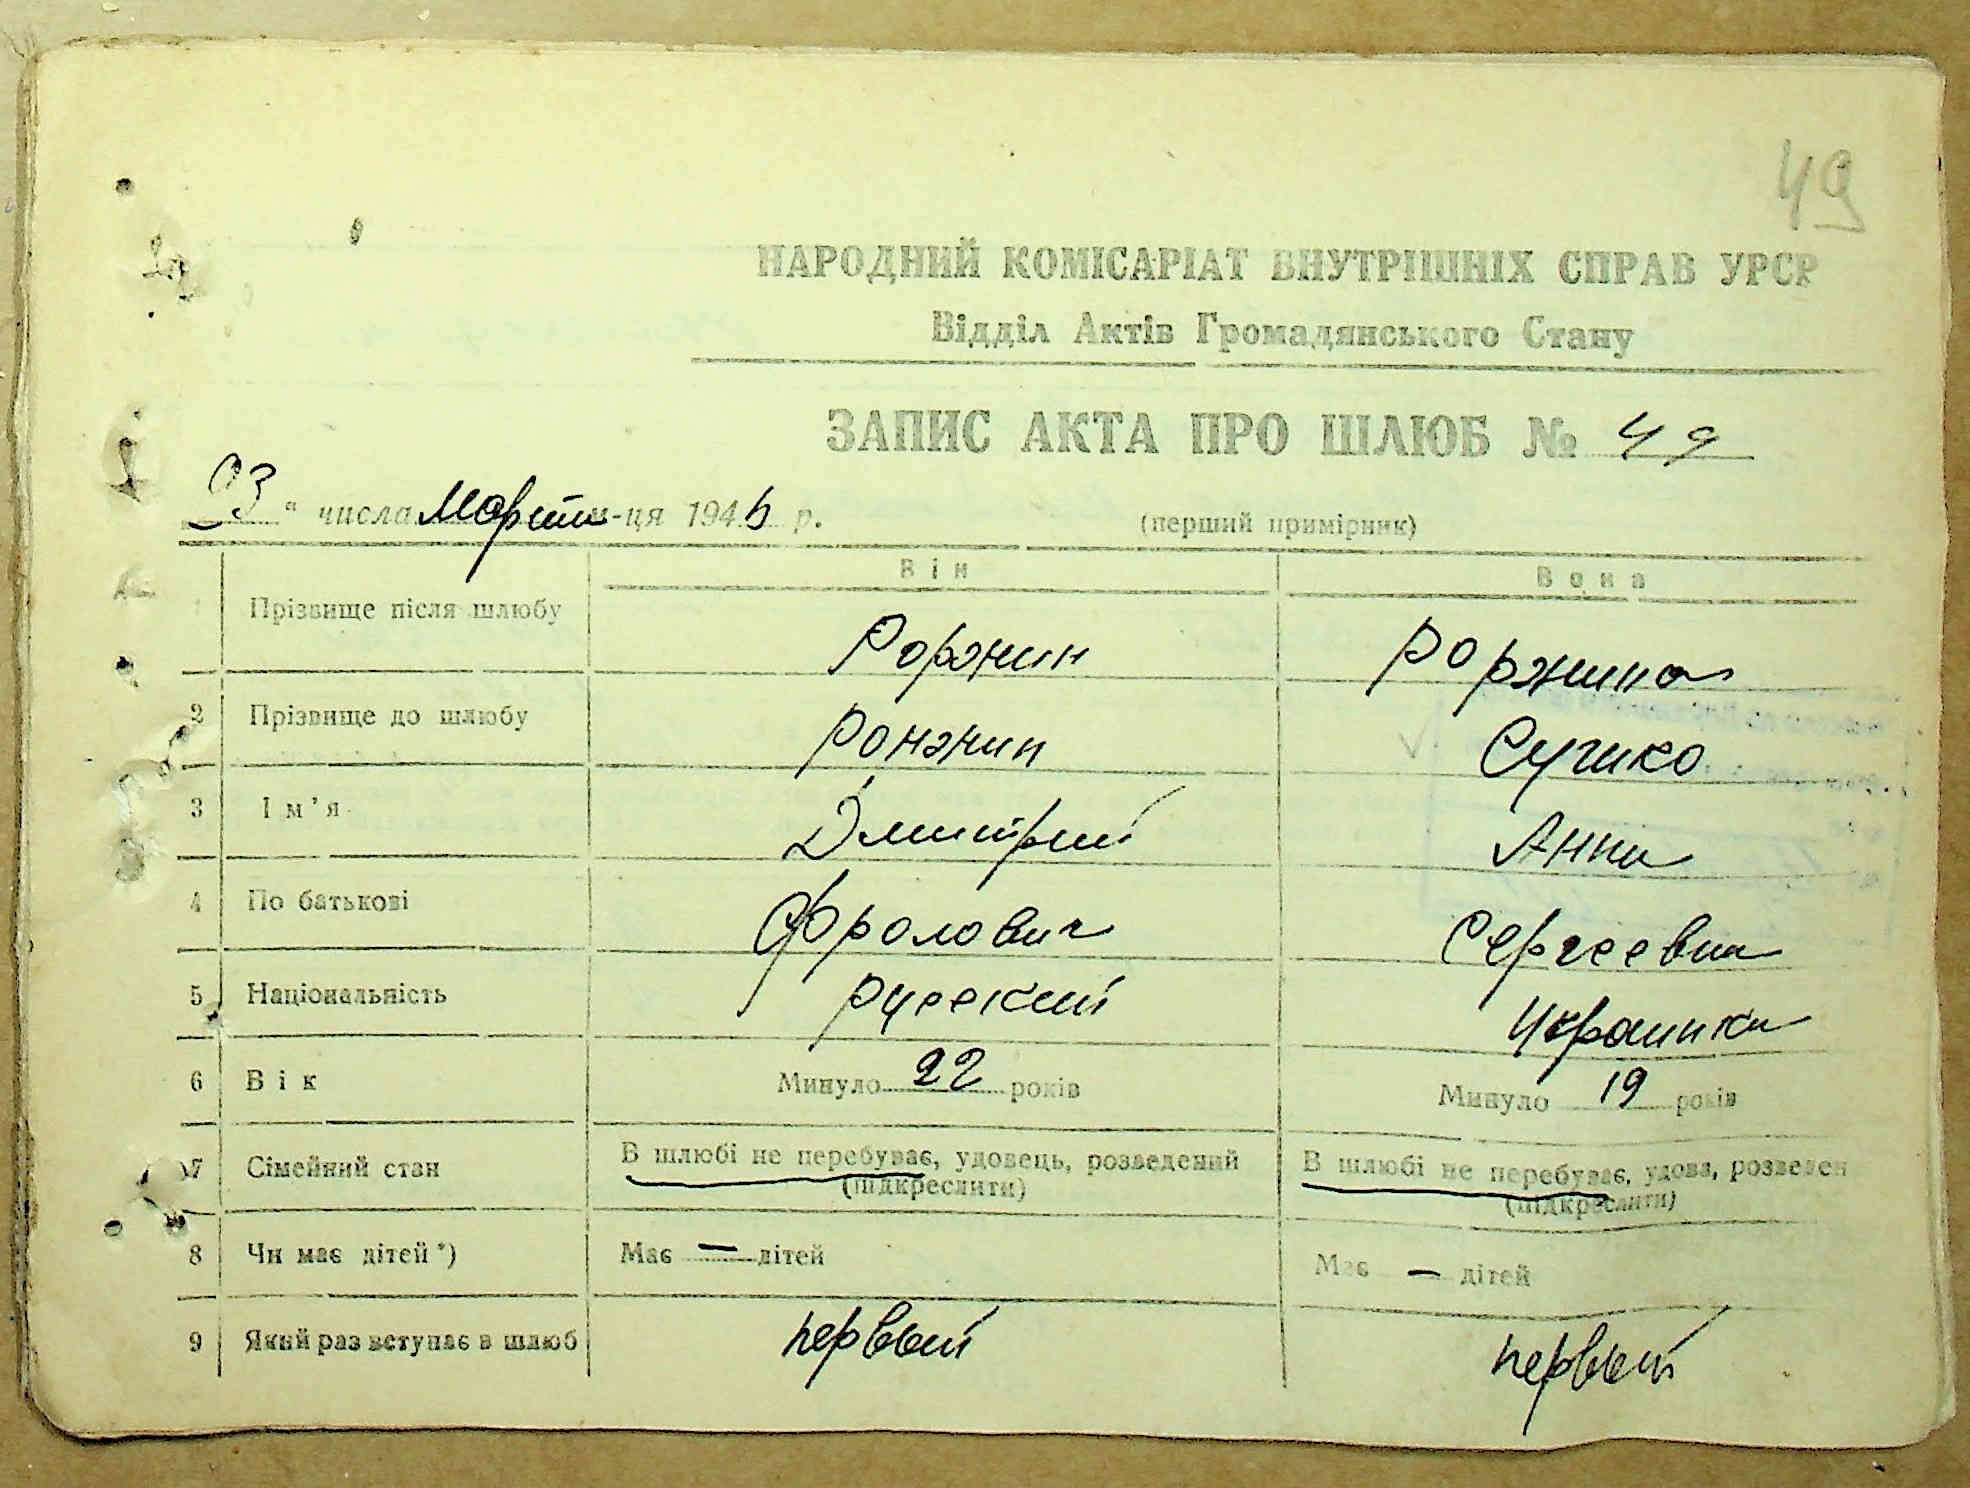 49
НАРОДНИЙ КОМІСАРІАТ ВНУТРІШНІХ СПРАВ УРСР
Відділ Актів Громадянського Стану
ЗАПИС АКТА ПРО ШЛЮБ № 49
"числа Марта м-ця 194 р.
(перший примірник)
Він Вона
1 Прізвище після шлюбу Роржин Роржина
2 Прізвище до шлюбу Ронжин
3 Ім'я Дмитрий Анна
4 По батькові Фролович Сергеевна
5 Національність русский Украинка
6 Вік Минуло 22 років Минуло 19 років
7 Сімейний стан В шлюбі не перебуває, удовець, розведений В шлюбі не перебуває, удова, розведен
(підкреслити) (підкреслити)
8 Чи має дітей *) Має — дітей Має — дітей
9 Який раз вступає в шлюб первый первый